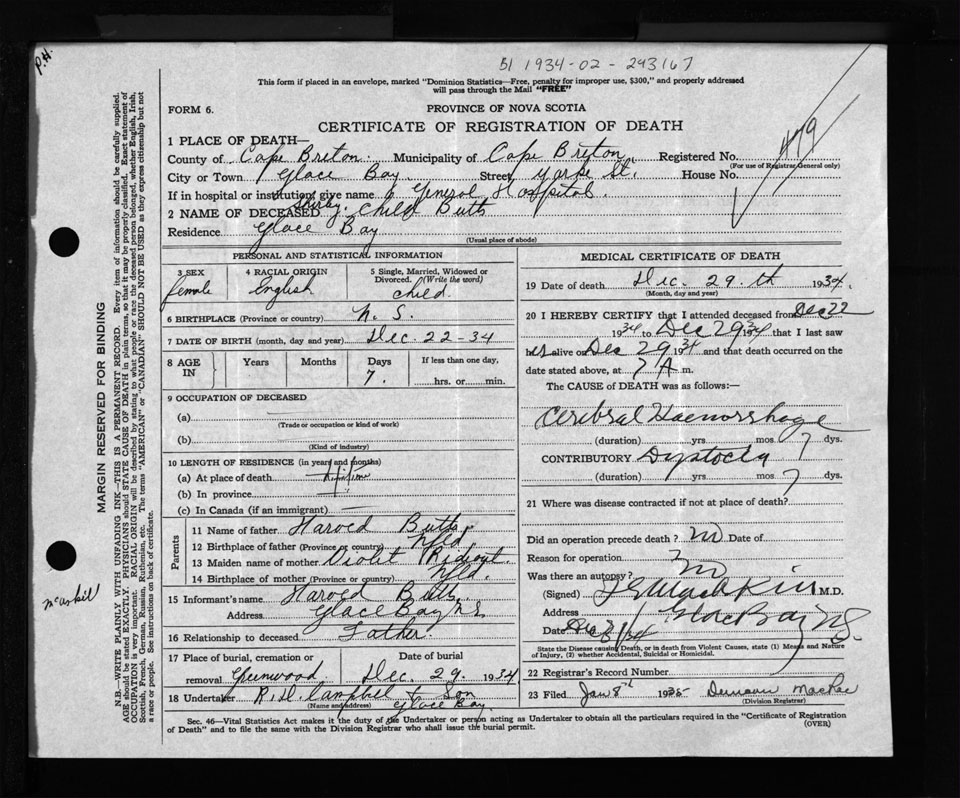 P.H.
51 1934-02-293167
This form if placed in an envelope, marked "Dominion Statistics—Free, penalty for improper use, $300," and properly addressed
will pass through the Mail "FREE"
FORM 6.
PROVINCE OF NOVA SCOTIA
CERTIFICATE OF REGISTRATION OF DEATH
1 PLACE OF DEATH—
479
County of Cape Breton. Municipality of Cape Breton. Registered No.
(For use of Registrar General only)
City or Town Glace Bay. Street Yorke St. House No.
If in hospital or institution, give name General Hospital.
2 NAME OF DECEASED Child Butts
Residence Glace Bay
(Usual place of abode)
PERSONAL AND STATISTICAL INFORMATION
3 SEX
female
4 RACIAL ORIGIN
English
5 Single, Married, Widowed or
Divorced. (Write the word)
child.
6 BIRTHPLACE (Province or country) N. S.
7 DATE OF BIRTH (month, day and year) Dec. 22-34
8 AGE
IN
Years
Months
Days
7.
If less than one day,
hrs. or min.
9 OCCUPATION OF DECEASED
(a)
(Trade or occupation or kind of work)
(b)
(Kind of industry)
10 LENGTH OF RESIDENCE (in years and months)
(a) At place of death Lifetime
(b) In province
(c) In Canada (if an immigrant)
Parents
11 Name of father Harold Butts.
12 Birthplace of father (Province or country) Nfld.
13 Maiden name of mother Violet Rideout.
14 Birthplace of mother (Province or country) Nfld.
15 Informant's name Harold Butts.
Address Glace Bay N.S.
16 Relationship to deceased Father.
17 Place of burial, cremation or
Date of burial
removal Greenwood Dec. 29. 1934
18 Undertaker R.H. Campbell & Son
(Name and address) Glace Bay
MEDICAL CERTIFICATE OF DEATH
19 Date of death Dec. 29.th 1934.
(Month, day and year)
20 I HEREBY CERTIFY that I attended deceased from Dec 22
1934 to Dec 29 1934 that I last saw
her alive on Dec 29 1934 and that death occurred on the
date stated above, at 7 A m.
The CAUSE of DEATH was as follows:—
Cerebral Haemorrhage
(duration) yrs mos 7 dys.
CONTRIBUTORY Dystocia
(duration) yrs mos 7 dys.
21 Where was disease contracted if not at place of death?
Did an operation precede death? no Date of
Reason for operation
Was there an autopsy? no
(Signed) M.D.
Address Glace Bay N.S.
Date
State the Disease causing Death, or in death from Violent Causes, state (1) Means and Nature
of Injury, (2) whether Accidental, Suicidal or Homicidal.
22 Registrar's Record Number
23 Filed Jan 8th 1935 Duncan MacRae
(Division Registrar)
Sec. 46—Vital Statistics Act makes it the duty of the Undertaker or person acting as Undertaker to obtain all the particulars required in the "Certificate of Registration
of Death" and to file the same with the Division Registrar who shall issue the burial permit.
(OVER)
MARGIN RESERVED FOR BINDING
N.B.—WRITE PLAINLY WITH UNFADING INK—THIS IS A PERMANENT RECORD. Every item of information should be carefully supplied.
AGE should be stated EXACTLY. PHYSICIANS should STATE CAUSE OF DEATH in plain terms, so that it may be properly classified. Exact statement of
OCCUPATION is very important. RACIAL ORIGIN will be described by stating to what people or race the deceased person belonged, whether English, Irish,
Scottish, French, German, Russian, Ruthenian, etc. The terms "AMERICAN" or "CANADIAN" SHOULD NOT BE USED as they express citizenship but not
a race or people. See instructions on back of certificate.